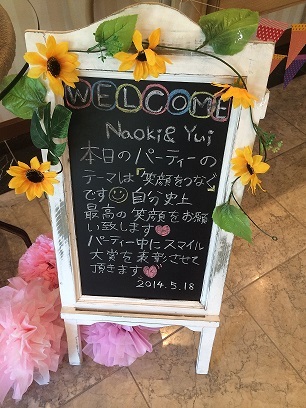 WELCOME
Naoki & Yui
本日のパーティーの
テーマは『笑顔をつなぐ』
です☺自分史上
最高の笑顔をお願
い致します♥
パーティー中にスマイル
大賞を表彰させて
頂きます♥
2014.5.18